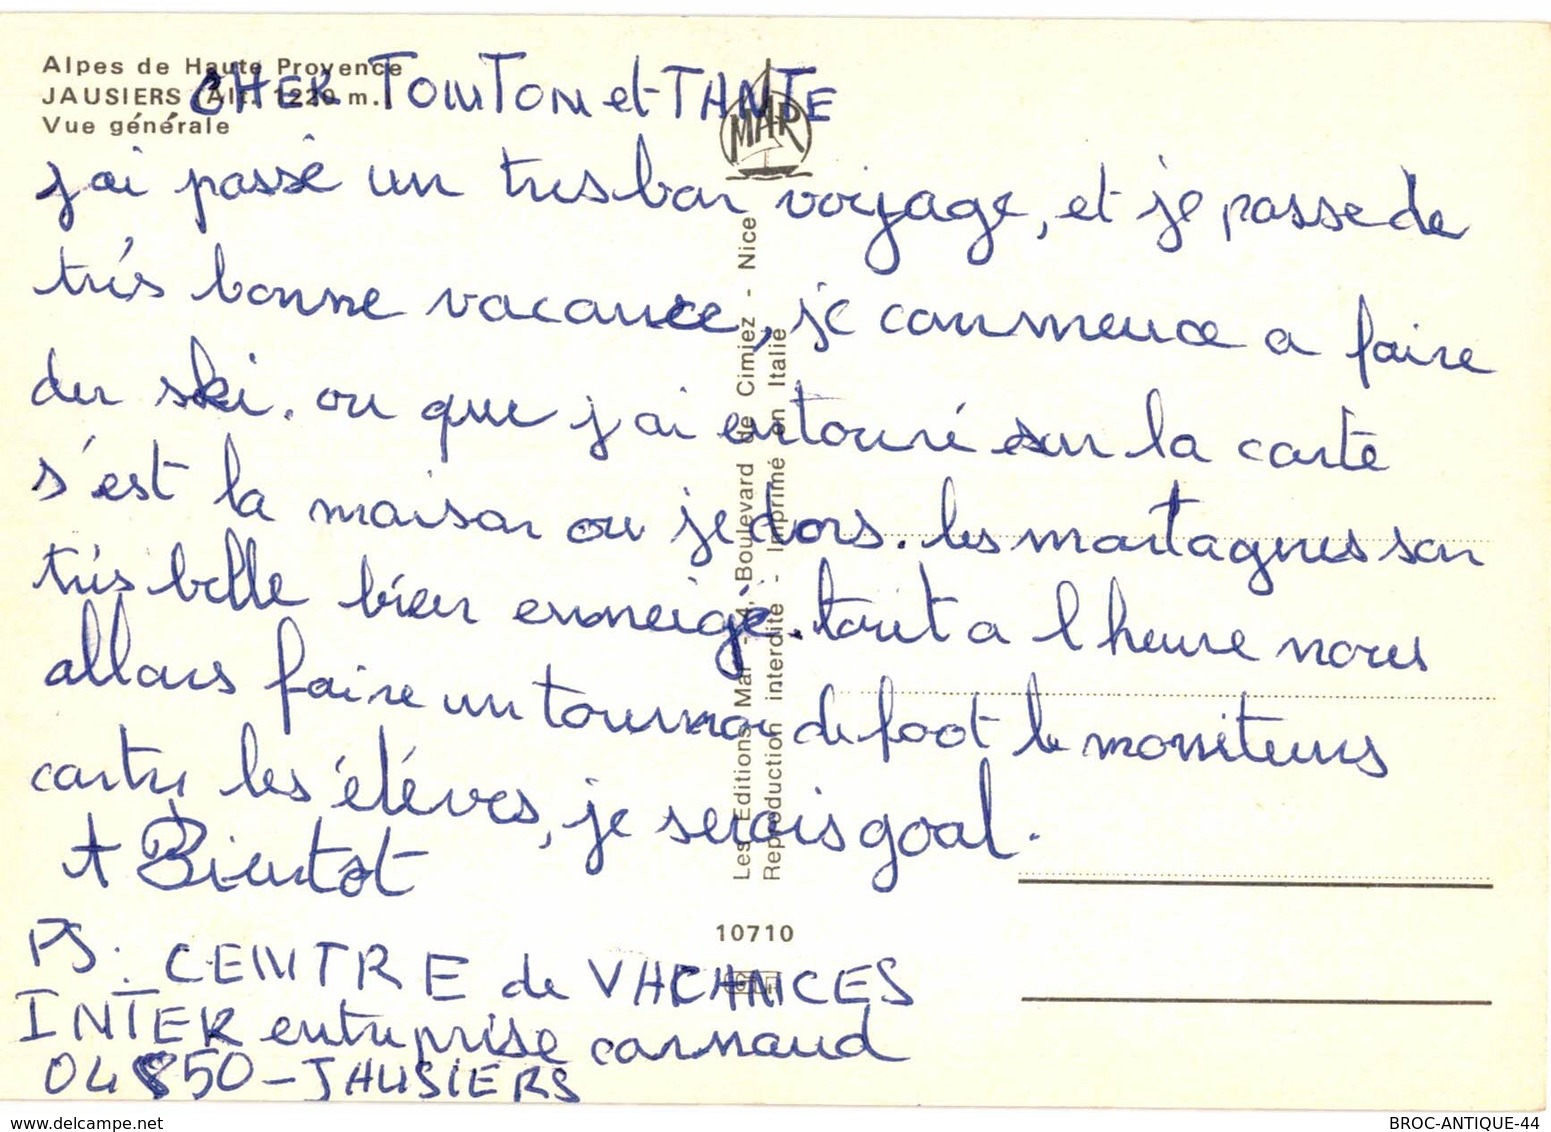 Alpes de Haute Provence
JAUSIERS (Alt. 1220 m.)
Vue générale
CHER TONTON et TANTE
MAR
j'ai passé un tres bon voiyage, et je passe de
trés bonne vacance, je conmence a faire
du ski. ou que j'ai entouré sur la carte
s'est la maison ou je dors. les montagnes son
trés belle bien enneigé. tout a l heure nous
allons faire un tournoi de foot le moniteurs
contre les éléves, je serais goal.
A Bientot
PS: CENTRE de VACANCES
INTER entreprise carnaud
04850 - JAUSIERS
Les Editions Mar - Boulevard de Cimiez - Nice
Reproduction interdite - Imprimé en Italie
10710
BROC-ANTIQUE-44
delcampe.net